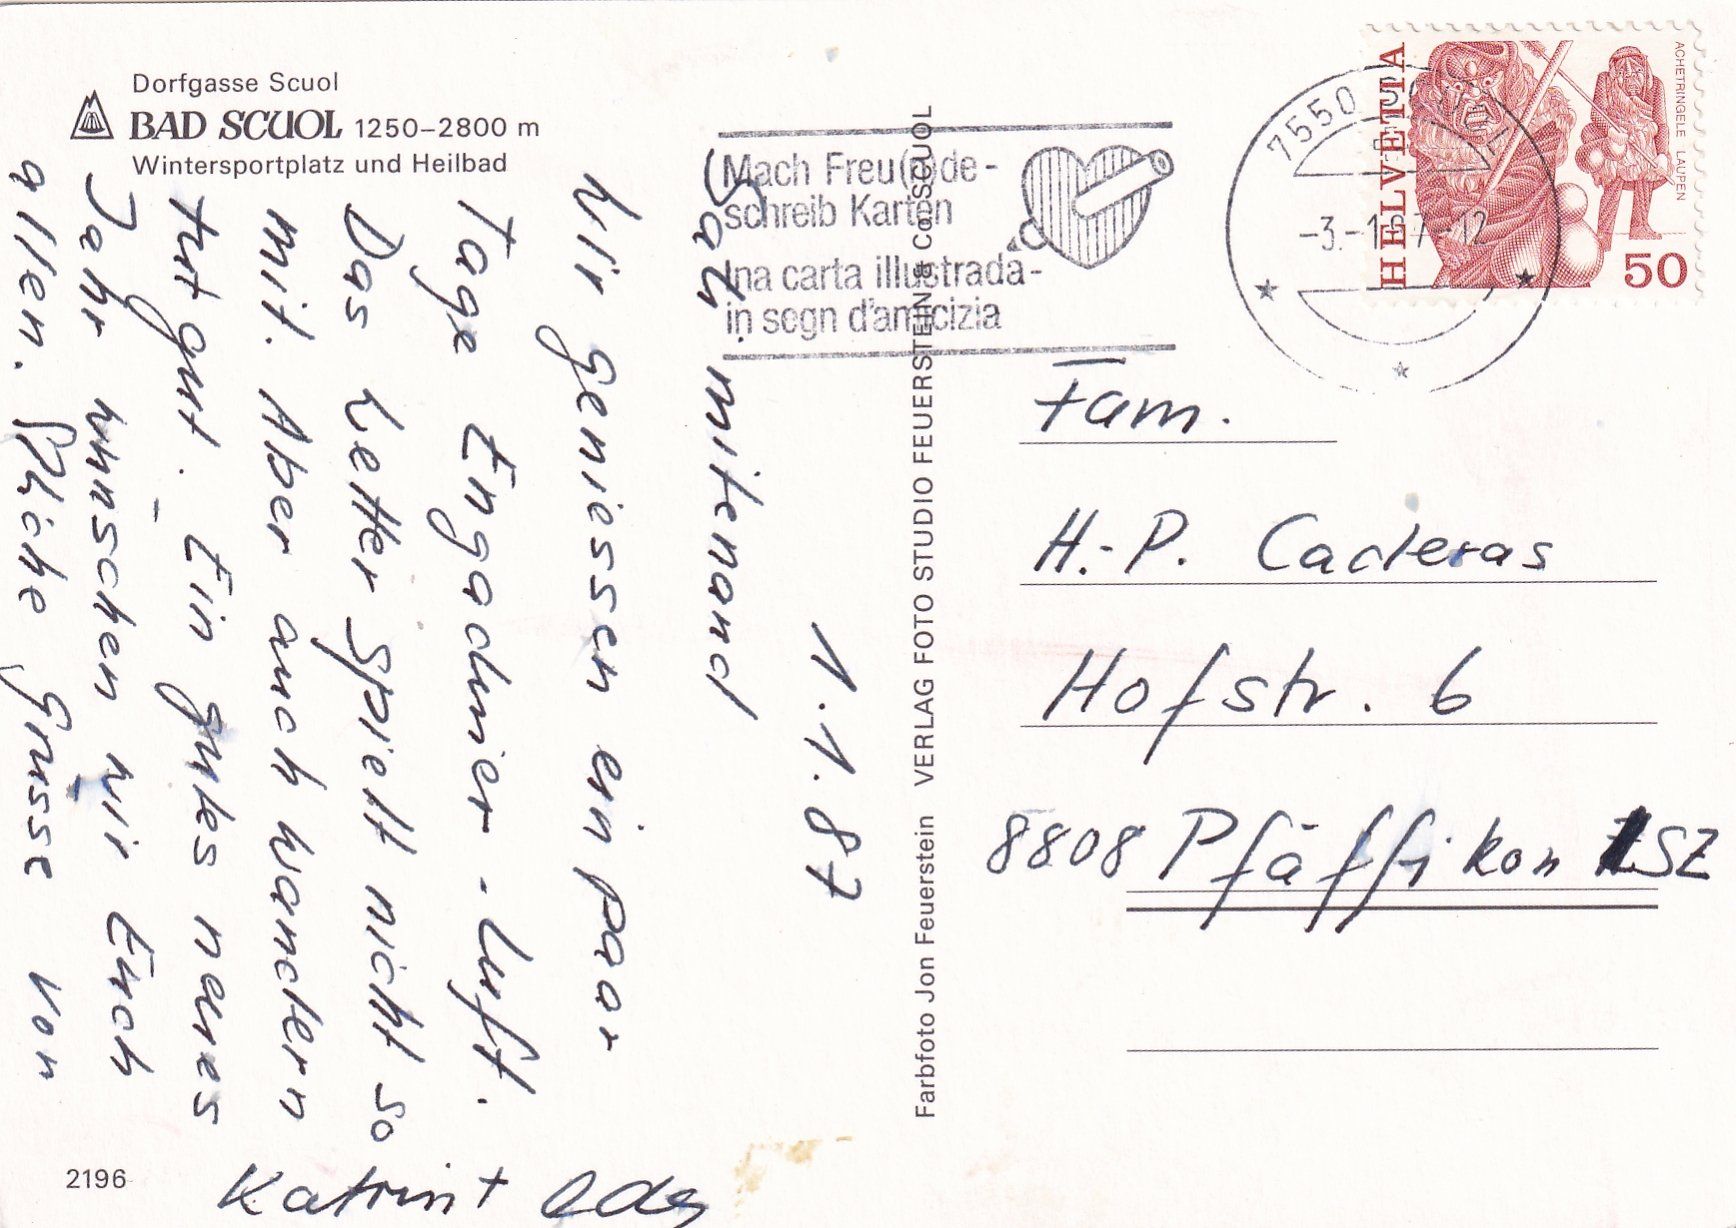 Dorfgasse Scuol
BAD SCUOL 1250–2800 m
Wintersportplatz und Heilbad
1.1.87
Sali mitenand
Wir geniessen ein paar
Tage Engadiner-Luft.
Das Wetter spielt nicht so
mit. Aber auch wandern
tut gut. Ein gutes neues
Jahr wünschen wir Euch
allen. Liebe Grüsse von
Katrin +
2196
Farbfoto Jon Feuerstein VERLAG FOTO STUDIO FEUERSTEIN & Co. SCUOL
Mach Freu(n)de-
schreib Karten
Ina carta illustrada-
in segn d'amicizia
7550 SCUOL
-3.-1.87-12
HELVETIA
ACHETRINGELE LAUPEN
50
Fam.
H.-P. Caderas
Hofstr. 6
8808 Pfäffikon SZ